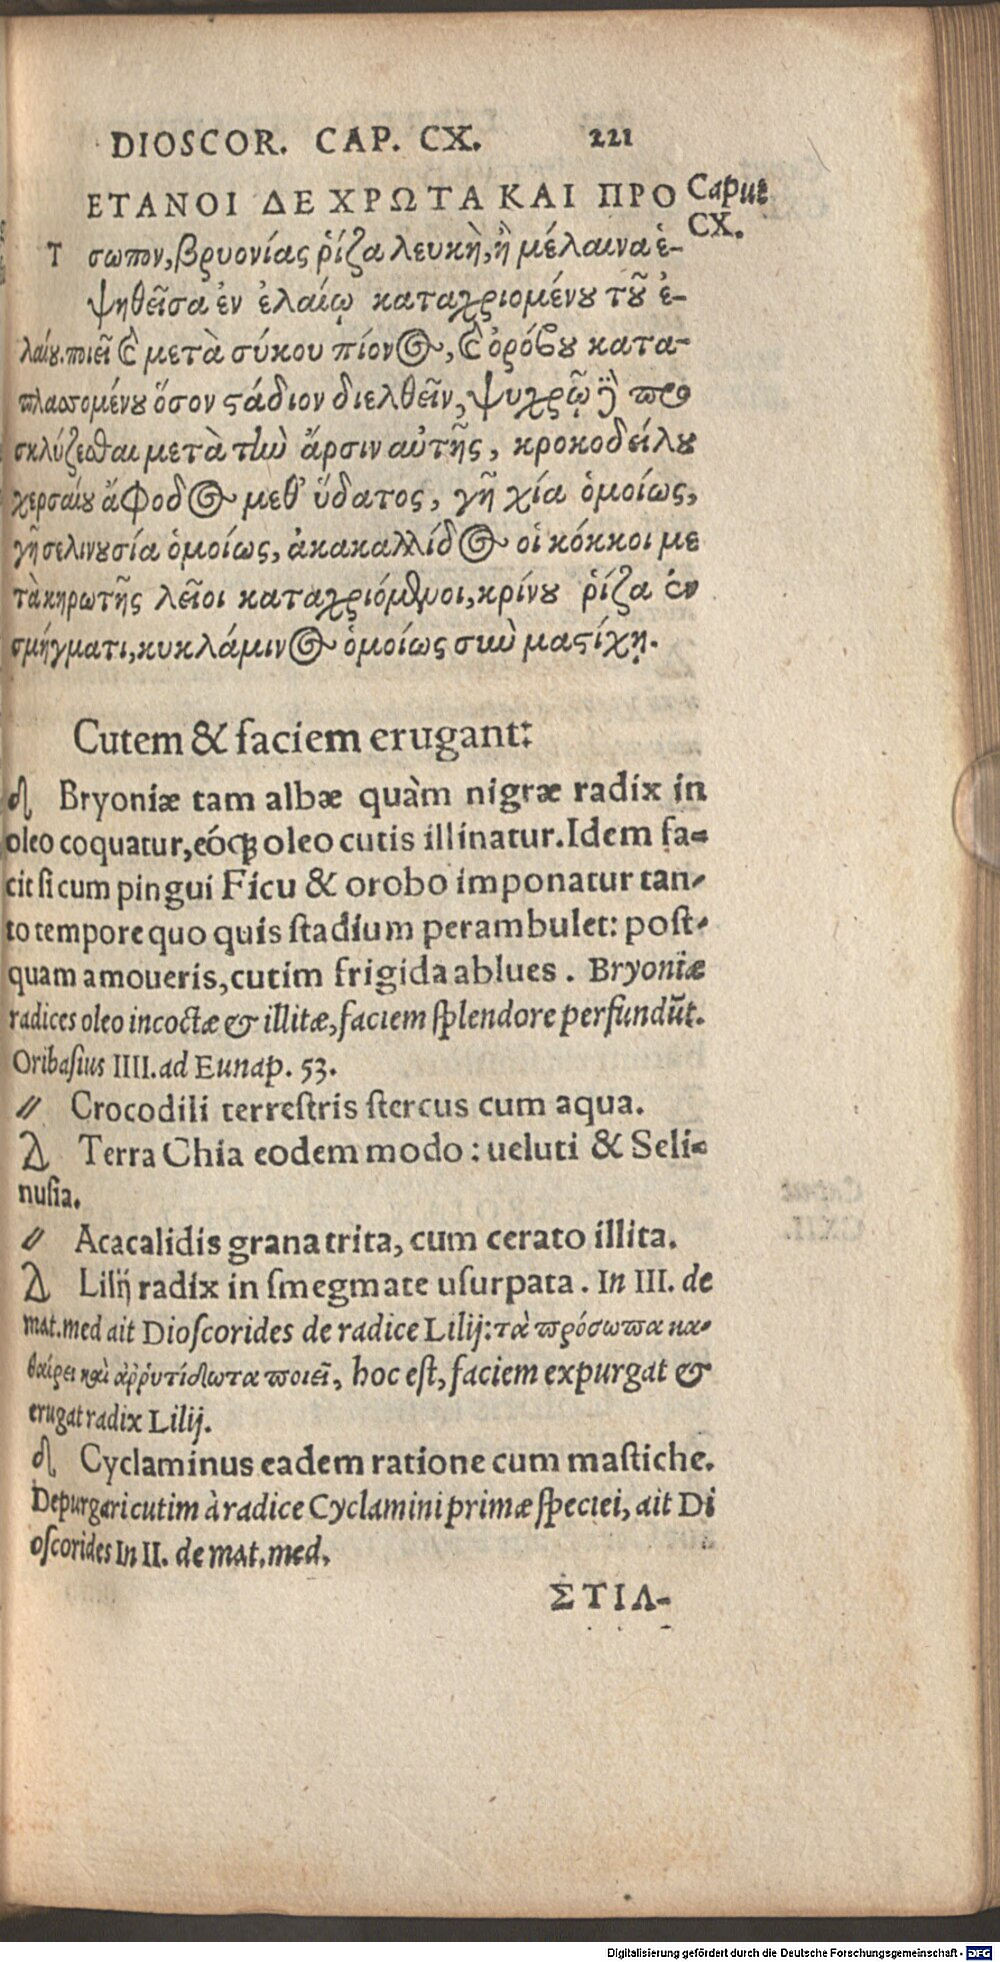 DIOSCOR. CAP. CX. 221
ΕΤΑΝΟΙ ΔΕ ΧΡΩΤΑ ΚΑΙ ΠΡΟ
Caput
CX.
Τ σωπον, βρυονίας ῥίζα λευκὴ, ἢ μέλαινα ἑ-
ψηθεῖσα ἐν ἐλαίῳ καταχριομένου τοῦ ἐ-
λαίου. ποιεῖ καὶ μετὰ σύκου πίονος, καὶ ὀρόβου κατα-
πλασσομένου ὅσον στάδιον διελθεῖν, ψυχρῷ δὲ προ
σκλύζεσθαι μετὰ τὴν ἄρσιν αὐτῆς, κροκοδείλου
χερσαίου ἄφοδος μεθ' ὕδατος, γῆ χία ὁμοίως,
γῆ σελινουσία ὁμοίως, ἀκακαλλίδος οἱ κόκκοι με
τὰ κηρωτῆς λεῖοι καταχριόμενοι, κρίνου ῥίζα ἐν
σμήγματι, κυκλάμινος ὁμοίως σὺν μαστίχῃ.
Cutem & faciem erugant:
Bryoniæ tam albæ quàm nigræ radix in
oleo coquatur, eóq; oleo cutis illinatur. Idem fa-
cit si cum pingui Ficu & orobo imponatur tan-
to tempore quo quis stadium perambulet: post-
quam amoueris, cutim frigida ablues. Bryoniæ
radices oleo incoctæ & illitæ, faciem splendore perfundũt.
Oribasius IIII. ad Eunap. 53.
// Crocodili terrestris stercus cum aqua.
Terra Chia eodem modo: ueluti & Seli-
nusia.
// Acacalidis grana trita, cum cerato illita.
Lilij radix in smegmate usurpata. In III. de
mat. med ait Dioscorides de radice Lilij: τὰ πρόσωπα κα-
θαίρει καὶ ἀῤῥυτίδωτα ποιεῖ, hoc est, faciem expurgat &
erugat radix Lilij.
Cyclaminus eadem ratione cum mastiche.
Depurgari cutim à radice Cyclamini primæ speciei, ait Di
oscorides In II. de mat. med.
ΣΤΙΛ-
Digitalisierung gefördert durch die Deutsche Forschungsgemeinschaft - DFG